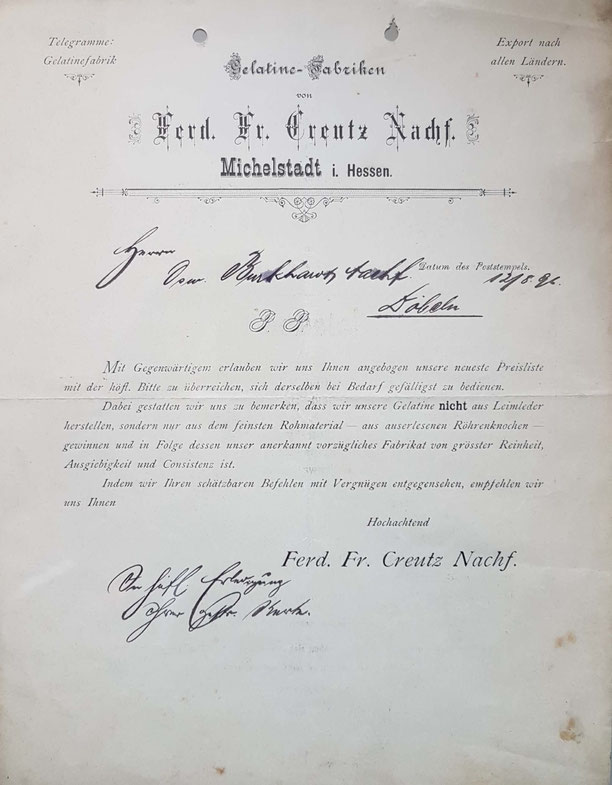 Telegramme:
Gelatinefabrik
Export nach
allen Ländern.
Gelatine-Fabriken
von
Ferd. Fr. Creutz Nachf.
Michelstadt i. Hessen.
Herrn
Osw. Burkhardt Nachf.
Datum des Poststempels.
Döbeln
P. P.
Mit Gegenwärtigem erlauben wir uns Ihnen angebogen unsere neueste Preisliste
mit der höfl. Bitte zu überreichen, sich derselben bei Bedarf gefälligst zu bedienen.
Dabei gestatten wir uns zu bemerken, dass wir unsere Gelatine nicht aus Leimleder
herstellen, sondern nur aus dem feinsten Rohmaterial — aus auserlesenen Röhrenknochen —
gewinnen und in Folge dessen unser anerkannt vorzügliches Fabrikat von grösster Reinheit,
Ausgiebigkeit und Consistenz ist.
Indem wir Ihren schätzbaren Befehlen mit Vergnügen entgegensehen, empfehlen wir
uns Ihnen
Hochachtend
Ferd. Fr. Creutz Nachf.
In höfl. Erledigung
Ihrer gesch. Karte.